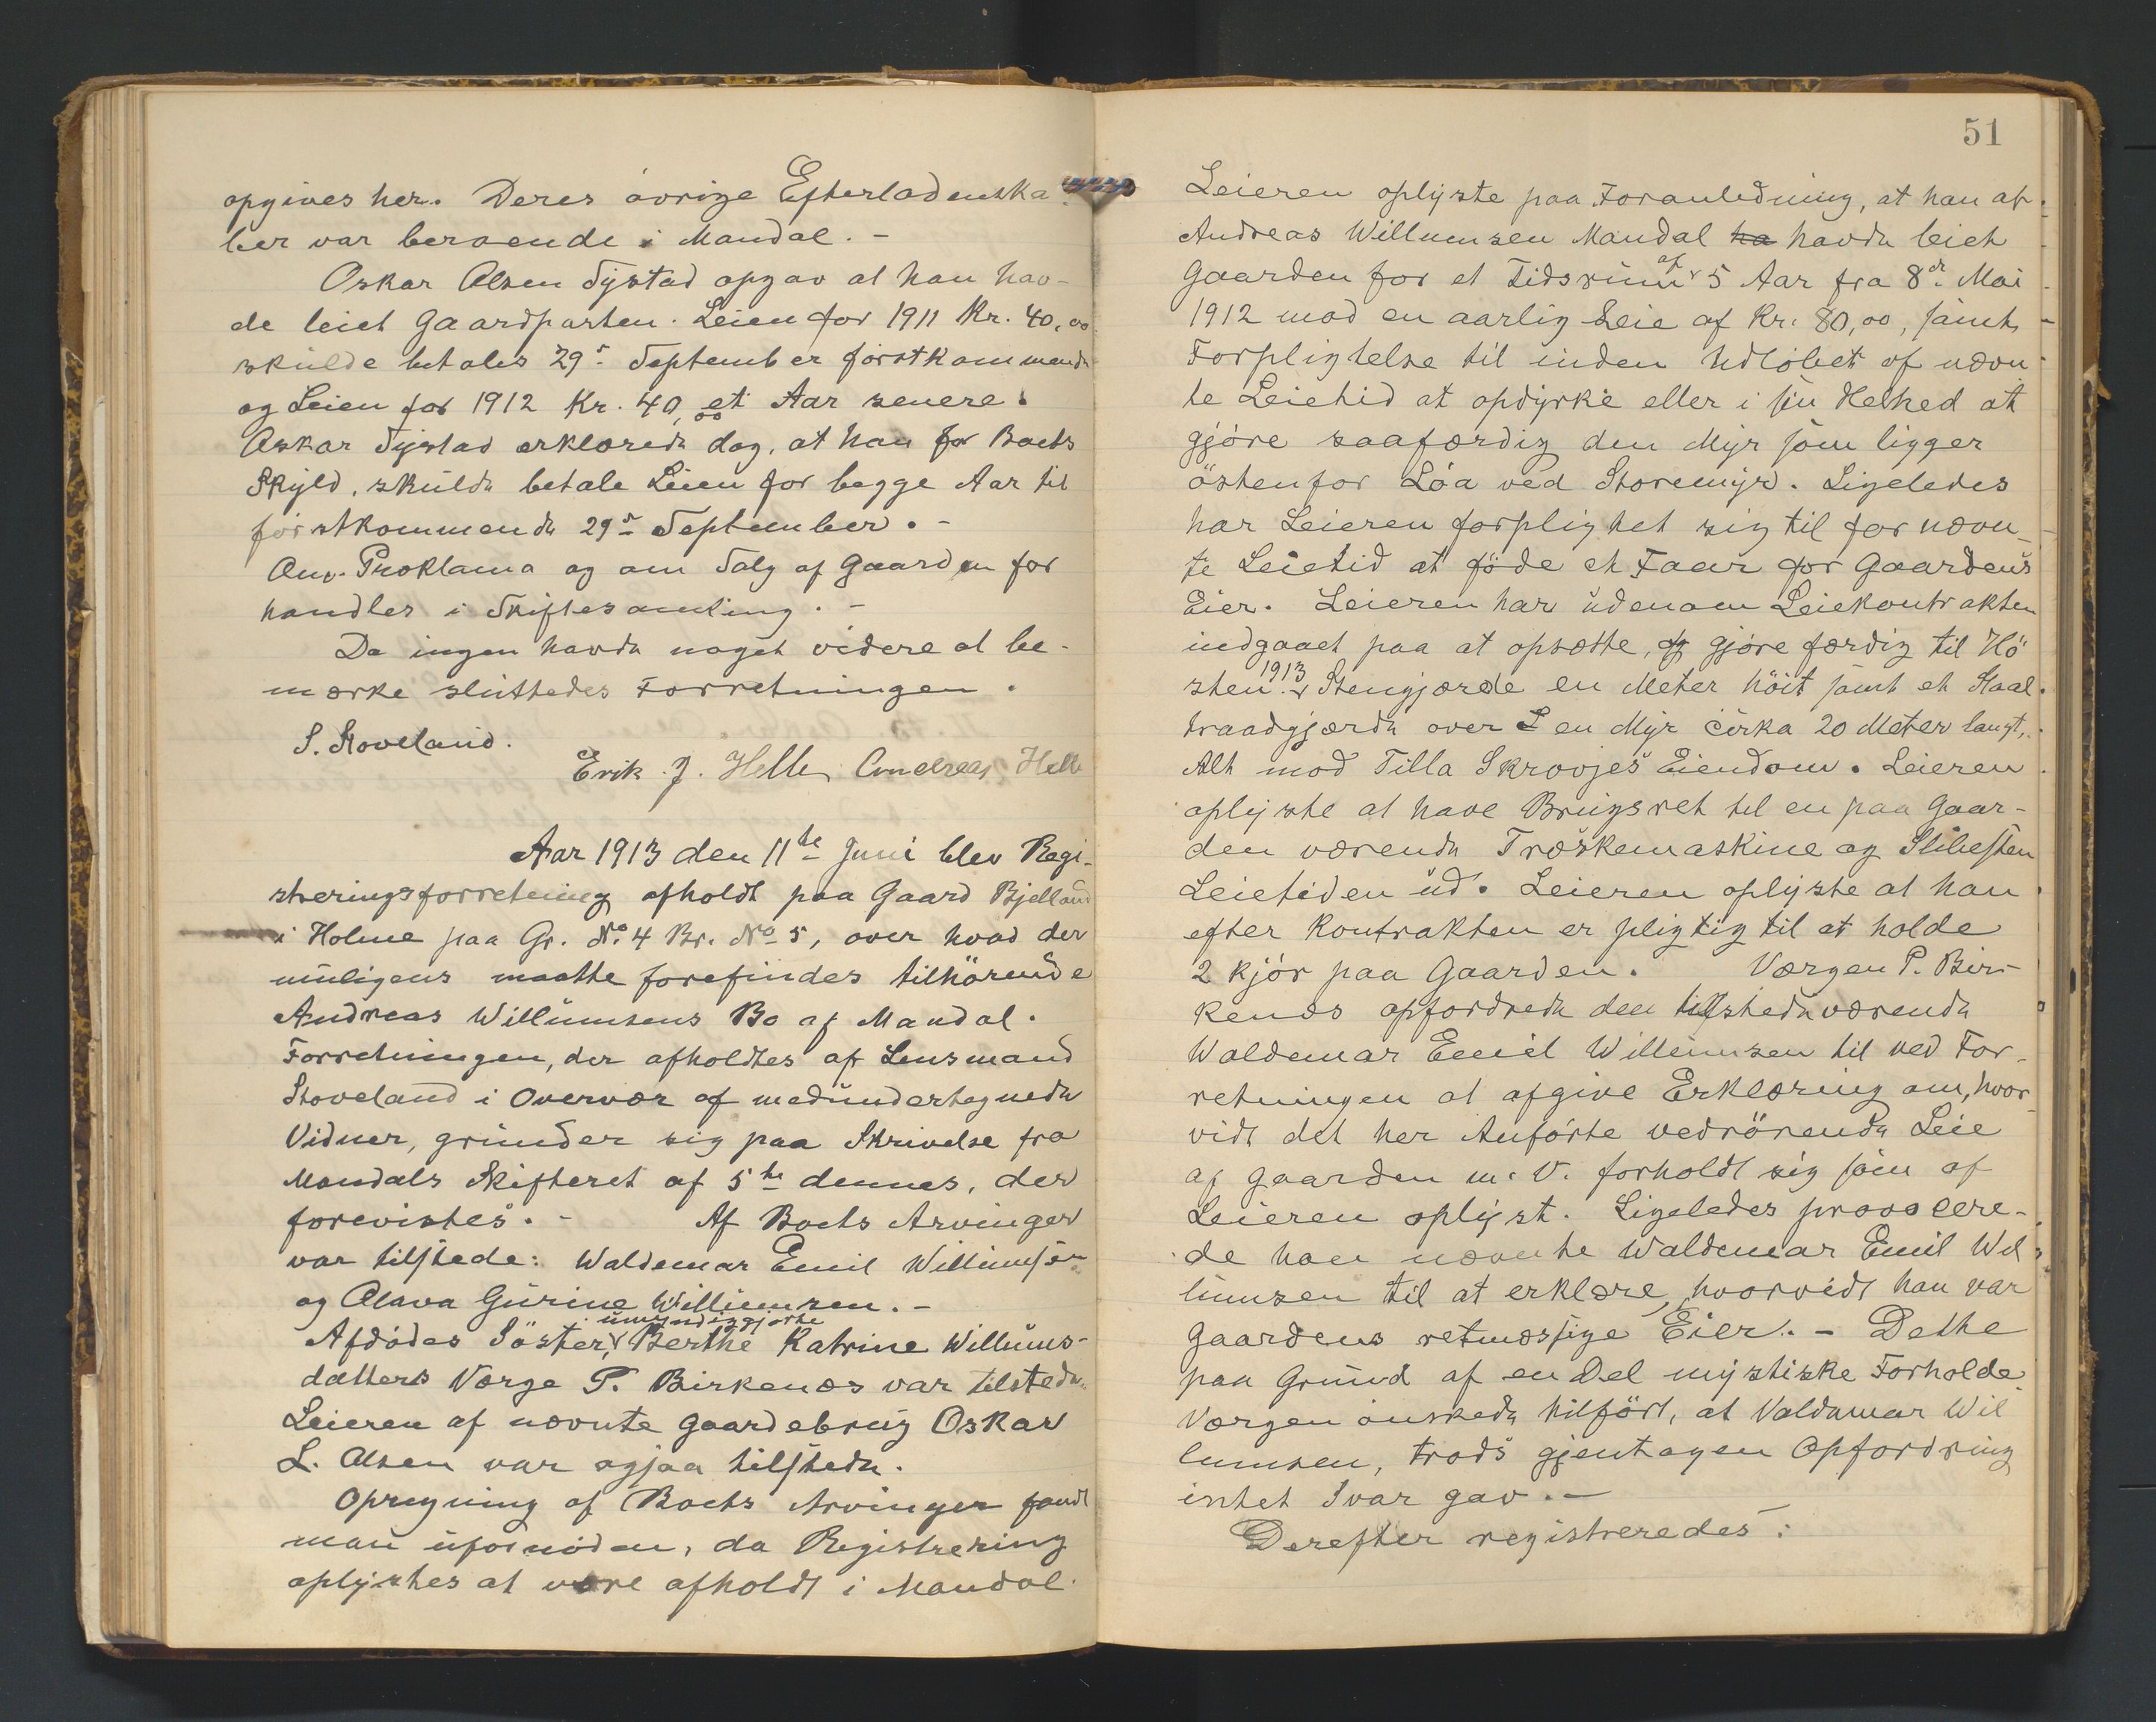 opgives her. Deres øvrige Efterladenska-
ber var beroende i Mandal. -
Oskar Olsen Tystad opgav at han hav-
de leiet Gaardparten. Leien for 1911 Kr. 40,00
skulde betales 29de September førstkommende
og Leien for 1912 Kr. 40,00 et Aar senere.
Oskar Tystad erklærede dog, at han for Boets
Skyld, skulde betale Leien for begge Aar til
førstkommende 29de September. -
Om Proklama og om Salg af Gaarden for
handles i Skiftesamling. -
Da ingen havde noget videre at be-
mærke sluttedes Forretningen.
S. Stoveland.
Erik J. Helle Andreas Helle
Aar 1913 den 11te Juni blev Regi-
streringsforretning afholdt paa Gaard Bjelland
i Holme paa Gr. No. 4 Br. No 5, over hvad der
muligens maatte forefindes tilhörende
Andreas Willumsens Bo af Mandal.
Forretningen, der afholdtes af Lensmand
Stoveland i Overvær af medundertegnede
Vidner, grunder sig paa Skrivelse fra
Mandals Skifteret af 5te dennes, der
forevistes. - Af Boets Arvinger
var tilstede: Waldemar Emil Willumsen
og Olava Gurine Willumsen. -
umyndiggjorte
Afdødes Søster, Berthe Katrine Willums-
datters Værge P. Birkenæs var tilstede.
Leieren af nævnte Gaardebrug Oskar
L. Olsen var ogsaa tilstede.
Opregning af Boets Arvinger fandt
man ufornöden, da Registrering
oplystes at være afholdt i Mandal.
51
Leieren oplyste paa Foranledning, at han af
Andreas Willumsen Mandal ha havde leiet
Gaarden for et Tidsrum af 5 Aar fra 8de Mai
1912 mod en aarlig Leie af Kr. 80,00, samt
Forpligtelse til inden Udløbet af nævn-
te Leietid at opdyrke eller i sin Helhed at
gjöre saafærdig den Myr som ligger
östenfor Löa ved Storemyr. Ligeledes
har Leieren forplighet sig til for nævn-
te Leietid at föde et Faar for Gaardens
Eier. Leieren har udenom Leiekontrakten
indgaaet paa at opsætte, og gjöre færdig til Hö
sten 1913 Stengjærde en Meter höit samt et Staal-
traadgjærde over en Myr cirka 20 Meter langt,
Alt mod Tilla Skrovjes Eiendom. Leieren
oplyste at have Brugsret til en paa Gaar-
den værende Træskemaskine og Slibesten
Leietiden ud. Leieren oplyste at han
efter Kontrakten er pligtig til at holde
2 kjör paa Gaarden. Værgen P. Bir-
kenæs opfordrede den tilstedeværende
Waldemar Emil Willumsen til ved For-
retningen at afgive Erklæring om, hvor-
vidt det her Anförte vedrörende Leie
af Gaarden m. v. forholdt sig som af
Leieren oplyst. Ligeledes provocere-
de han nævnte Waldemar Emil Wil
lumsen til at erklære, hvorvidt han var
Gaardens retmæssige Eier. - Dette
paa Grund af en Del mystiske Forholde.
Værgen önskede tilfört, at Valdemar Wil
lumsen, trods gjentagen Opfordring
intet Svar gav. -
Derefter registreredes: